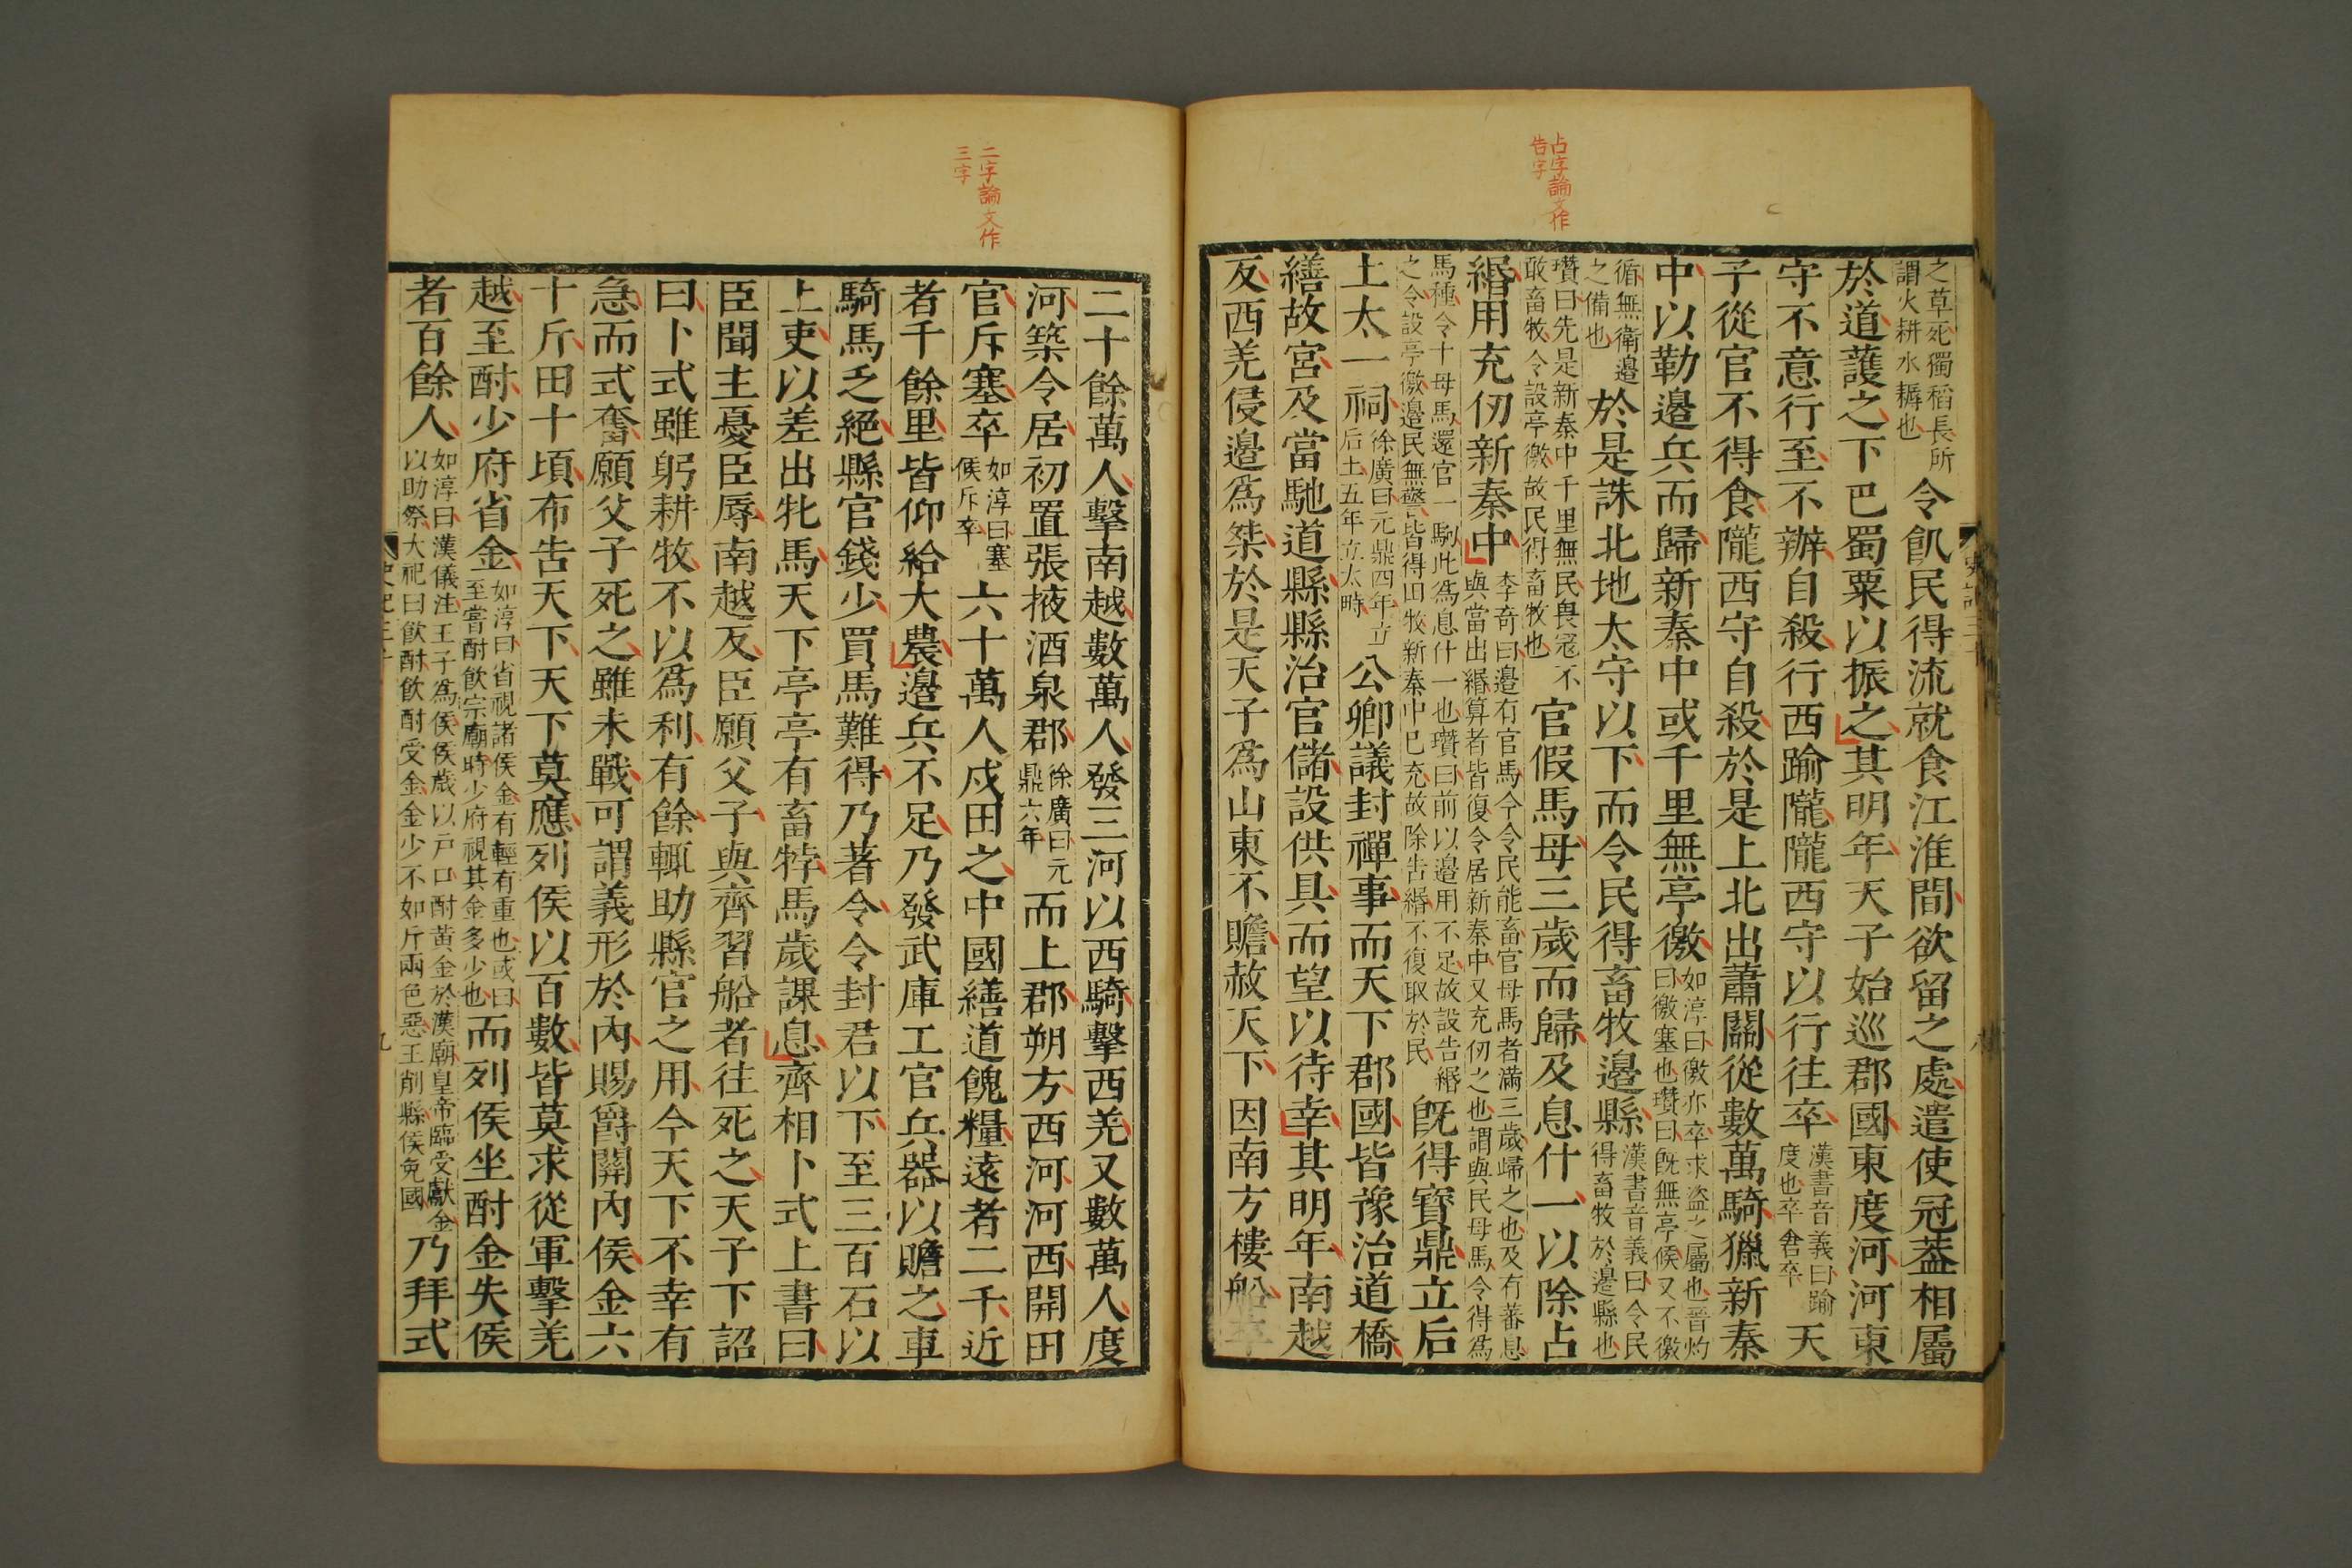 占字論文作
告字
之草死獨稻長所謂火耕水耨也令飢民得流就食江淮間欲留之處遣使冠蓋相屬
於道護之下巴蜀粟以振之其明年天子始巡郡國東度河河東
守不意行至不辦自殺行西踰隴隴西守以行往卒漢書音義曰踰度也卒倉卒天
子從官不得食隴西守自殺於是上北出蕭關從數萬騎獵新秦
中以勒邊兵而歸新秦中或千里無亭徼如淳曰徼亦卒求盜之屬也晉灼曰徼塞也瓚曰旣無亭候又不徼
循無衛邊之備也於是誅北地太守以下而令民得畜牧邊縣漢書音義曰令民得畜牧於邊縣也
瓚曰先是新秦中千里無民與冦不敢畜牧令設亭徼故民得畜牧也官假馬母三歲而歸及息什一以除占
緡用充仞新秦中李奇曰邊有官馬今令民能畜官母馬者滿三歲歸之也及有蕃息與當出緡算者皆復令居新秦中又充仞之也謂與民母馬令得爲
馬種令十母馬還官一駒此爲息什一也瓚曰前以邊用不足故設告緡之令設亭徼邊民無警皆得田牧新秦中已充故除告緡不復取於民旣得寶鼎立后
土太一祠徐廣曰元鼎四年立后土五年立太畤公卿議封禪事而天下郡國皆豫治道橋
繕故宮及當馳道縣縣治官儲設供具而望以待幸其明年南越
反西羌侵邊爲桀於是天子爲山東不贍赦天下因南方樓船卒
二字論文作
三字
二十餘萬人擊南越數萬人發三河以西騎擊西羌又數萬人度
河築令居初置張掖酒泉郡徐廣曰元鼎六年而上郡朔方西河河西開田
官斥塞卒如淳曰塞候斥卒六十萬人戍田之中國繕道餽糧遠者二千近
者千餘里皆仰給大農邊兵不足乃發武庫工官兵器以贍之車
騎馬乏絕縣官錢少買馬難得乃著令令封君以下至三百石以
上吏以差出牝馬天下亭亭有畜牸馬歲課息齊相卜式上書曰
臣聞主憂臣辱南越反臣願父子與齊習船者往死之天子下詔
曰卜式雖躬耕牧不以爲利有餘輒助縣官之用今天下不幸有
急而式奮願父子死之雖未戰可謂義形於內賜爵關內侯金六
十斤田十頃布告天下天下莫應列侯以百數皆莫求從軍擊羌
越至酎少府省金如淳曰省視諸侯金有輕有重也或曰至嘗酎飲宗廟時少府視其金多少也而列侯坐酎金失侯
者百餘人如淳曰漢儀注王子爲侯侯歲以戶口酎黃金於漢廟皇帝臨受獻金以助祭大祀曰飲酎飲酎受金金少不如斤兩色惡王削縣侯免國乃拜式
史記三十
九